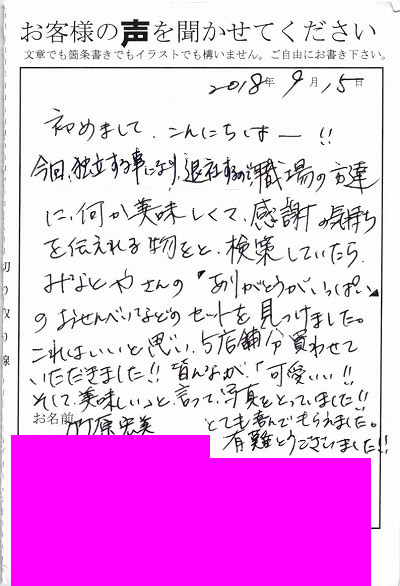 お客様の声を聞かせてください
文章でも箇条書きでもイラストでも構いません。ご自由にお書き下さい。
2018年 9月 15日
初めまして、こんにちはー!!
今回、独立する事になり、退社するので職場の方達
に、何か美味しくて、感謝の気持ち
を伝えれる物をと、検索していたら、
みなとやさんの『ありがとうがいっぱい』
のおせんべいなどのセットを見つけました。
これはいいと思い、5店舗分買わせて
いただきました!!皆んなが、「可愛いい!!
そして、美味しい」と言って、写真をとっていました!!
とても喜んでもらえました。
有難とうございました!!
お名前
竹原宏美
切り取り線